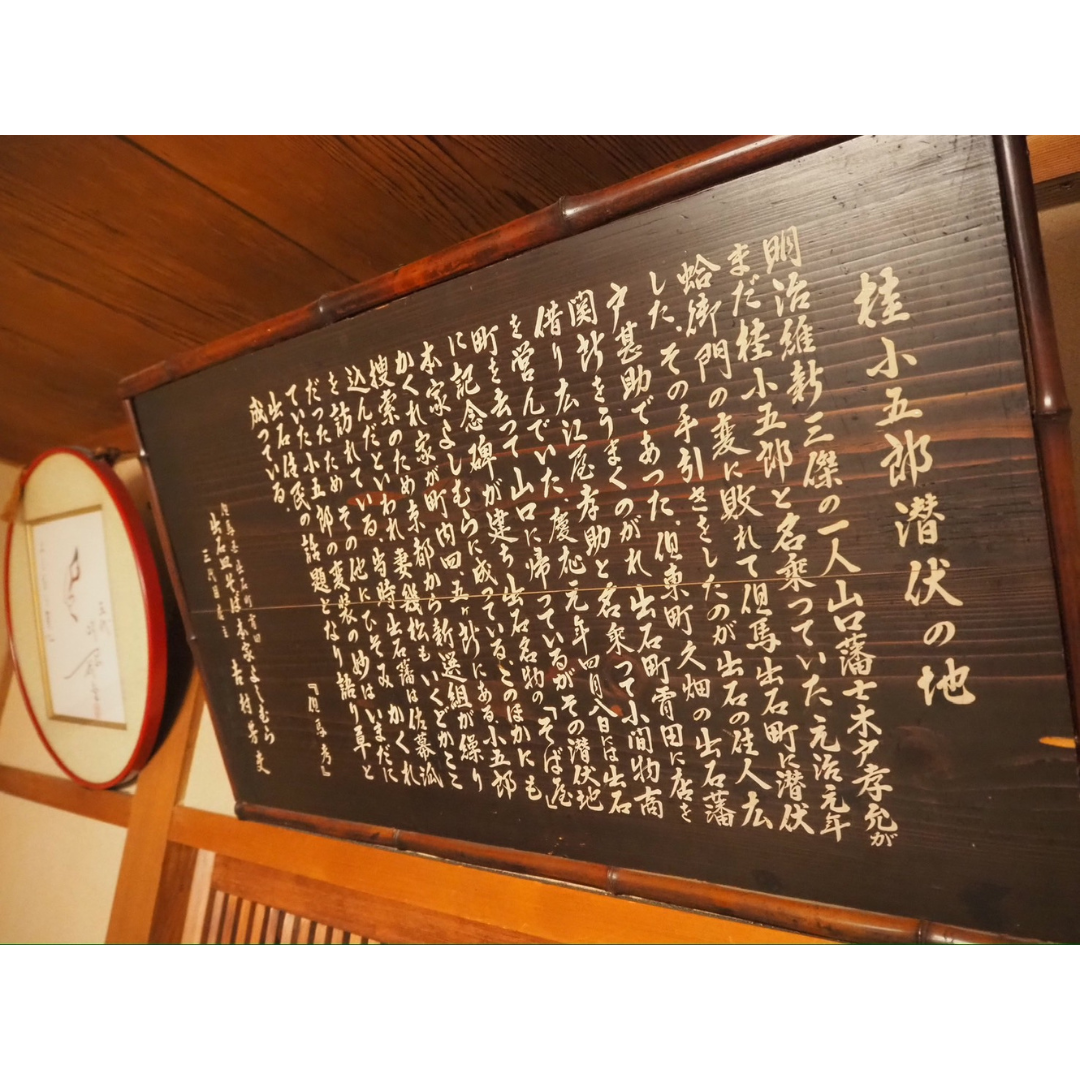 桂小五郎潜伏の地
明治維新三傑の一人山口藩士木戸孝允が
まだ桂小五郎と名乗っていた元治元年
蛤御門の変に敗れて但馬出石町に潜伏
した、その手引きをしたのが出石の住人広
戸甚助であった、但東町久畑の出石藩
関所をうまくのがれ出石町宵田に店を
借り広江屋孝助と名乗って小間物商
を営んでいた、慶応元年四月八日には出石
町を去って山口に帰っているがその潜伏地
に記念碑が建ち出石名物の「そば屋」
本家よしむらに成っている、このほかにも
かくれ家が町内四五ヶ所にある、小五郎
捜索のため京都から新選組が繰り
込んだといわれ妻幾松もいくどかとこ
を訪れている、当時出石藩は佐幕派
だったためその他にひそみ、かくれ
ていた小五郎の変装の妙は、いまだに
出石住民の話題となり語り草と
成っている、
『但馬考』
出石皿そば本家よしむら
三代目